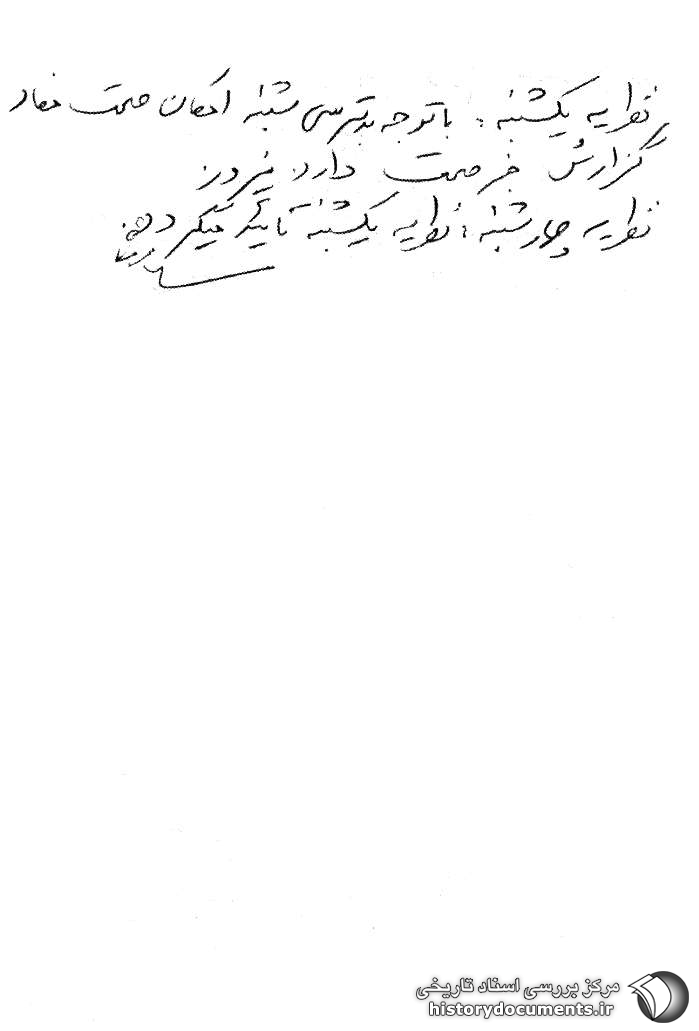 نظریه یکشنبه : با توجه بدسترسی شنبه امکان صحت مفاد
گزارش خبر صحت دارد. فیروز
نظریه چهارشنبه : نظریه یکشنبه تأیید میگردد.
مرکز بررسی اسناد تاریخی
historydocuments.ir